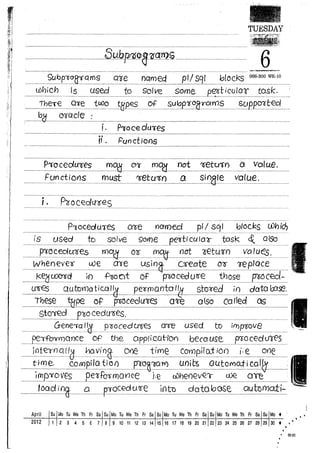 TUESDAY
6
066-300 WK-10
Subprograms
Subprograms are named pl/sql blocks
which is used to solve some perticular task.
There are two types of subprograms supported
by oracle :
i. Procedures
ii. Functions
Procedures may or may not return a value.
Functions must return a single value.
i. Procedures
Procedures are named pl/sql blocks which
is used to solve some perticular task & also
procedures may or may not return values.
Whenever we are using create or replace
keyword in front of procedure those proced-
ures automatically permantally stored in database.
These type of procedures are also called as
stored procedures.
Generally procedures are used to improve
performance of the application because procedures
internally having one time compilation i.e one
time compilation program units automatically
improves performance i.e whenever we are
loading a procedure into database automati-
April Su Mo Tu We Th Fr Sa Su Mo Tu We Th Fr Sa Su Mo Tu We Th Fr Sa Su Mo Tu We Th Fr Sa Su Mo
2012 1 2 3 4 5 6 7 8 9 10 11 12 13 14 15 16 17 18 19 20 21 22 23 24 25 26 27 28 29 30